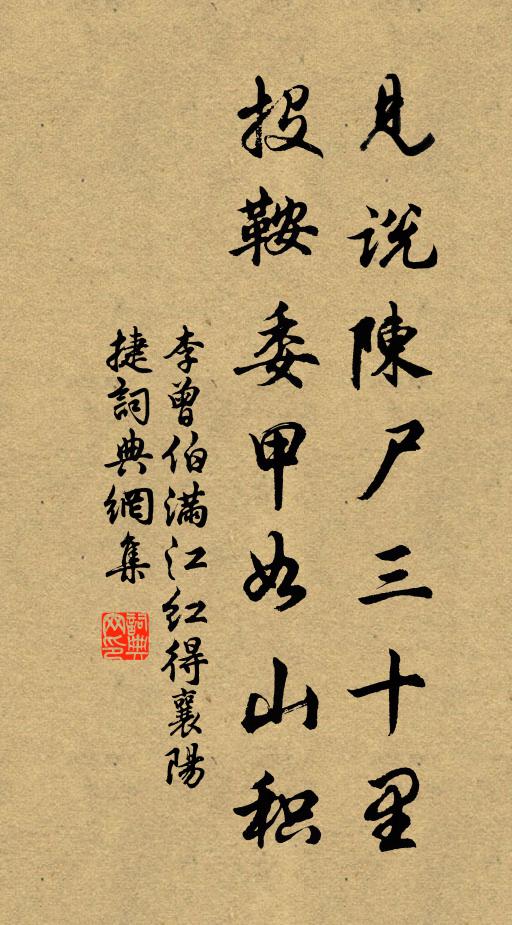 見說陳尸三十里
投鞍委甲如山积
李曾伯满江红得襄陽
捷詞典網集
詞典网印